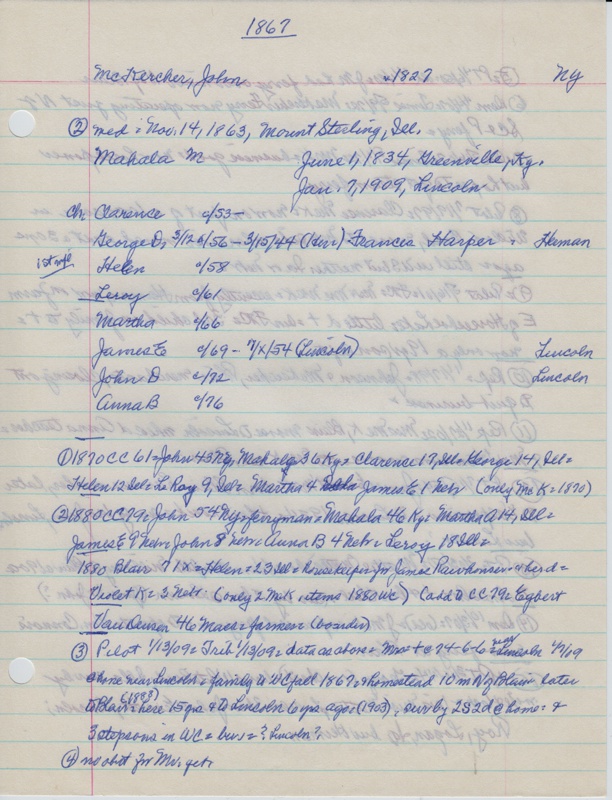 1867
McKercher, John c/1827 NY
② md = Nov. 14, 1863, Mount Sterling, Ill.
Mahala M June 1, 1834, Greenville, Ky.
Jan. 7, 1909, Lincoln
ch Clarence c/53-
George D, 3/12 c/56 - 3/15/44 (Her) Frances Harper = Herman
1st wf Helen c/58
Leroy c/61
Martha c/66
James E c/69 - 7/x/54 (Lincoln) Lincoln
John D c/72 Lincoln
Anna B c/76
① 1870 CC 61 = John 43 NY, Mahala 36 Ky = Clarence 17, Ill = George 14, Ill =
Helen 12 Ill = Le Roy 9, Ill = Martha 4 James E 1 Neb (only McK = 1870)
② 1880 CC 79 = John 54 NY = ferryman = Mahala 46 Ky = Martha A 14, Ill =
James E 9 Neb = John 8 Neb = Anna B 4 Neb = Leroy 18 Ill =
1880 Blair 71 x = Helen = 23 Ill = housekeeper for James Rawhouser + her d =
Violet K = 3 Neb. (only 2 McK items 1880 WC) (add to CC 79 = Egbert
Van Deusen 46 Mass = farmer = (boarder)
③ Pilot 1/13/09 = Trib 1/13/09 = data as above = Mrs + 74-6-6 = Lincoln 1/7/09
@ home near Lincoln = family to WC fall 1867 = homestead 10 m N of Blair = later
to Blair (1888) = here 15 yrs = to Lincoln 6 yrs ago = (1903), surv by 2S 2d @ home = +
3 stepsons in WC = bur = ? Lincoln?
④ no obit for Mr. yet